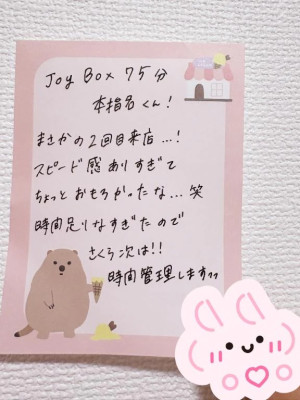 Joy Box 75分
本指名くん!
まさかの2回目来店…!
スピード感ありすぎて
ちょっとおもろかったな…笑
時間足りなすぎたので
さくら次は!!
時間管理します??